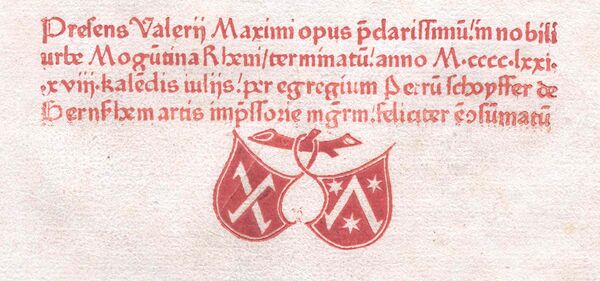 Presens Valerij Maximi opus p̄clarissimū/in nobili
urbe Mogūtina Rheni/terminatū/anno M.cccc.lxxi.
.xviii.kalēdis iulijs/per egregium Petrū schoyffer de
Gernsʒhem artis imp̄ssorie mgr̄m/feliciter ē ↄsūmatū